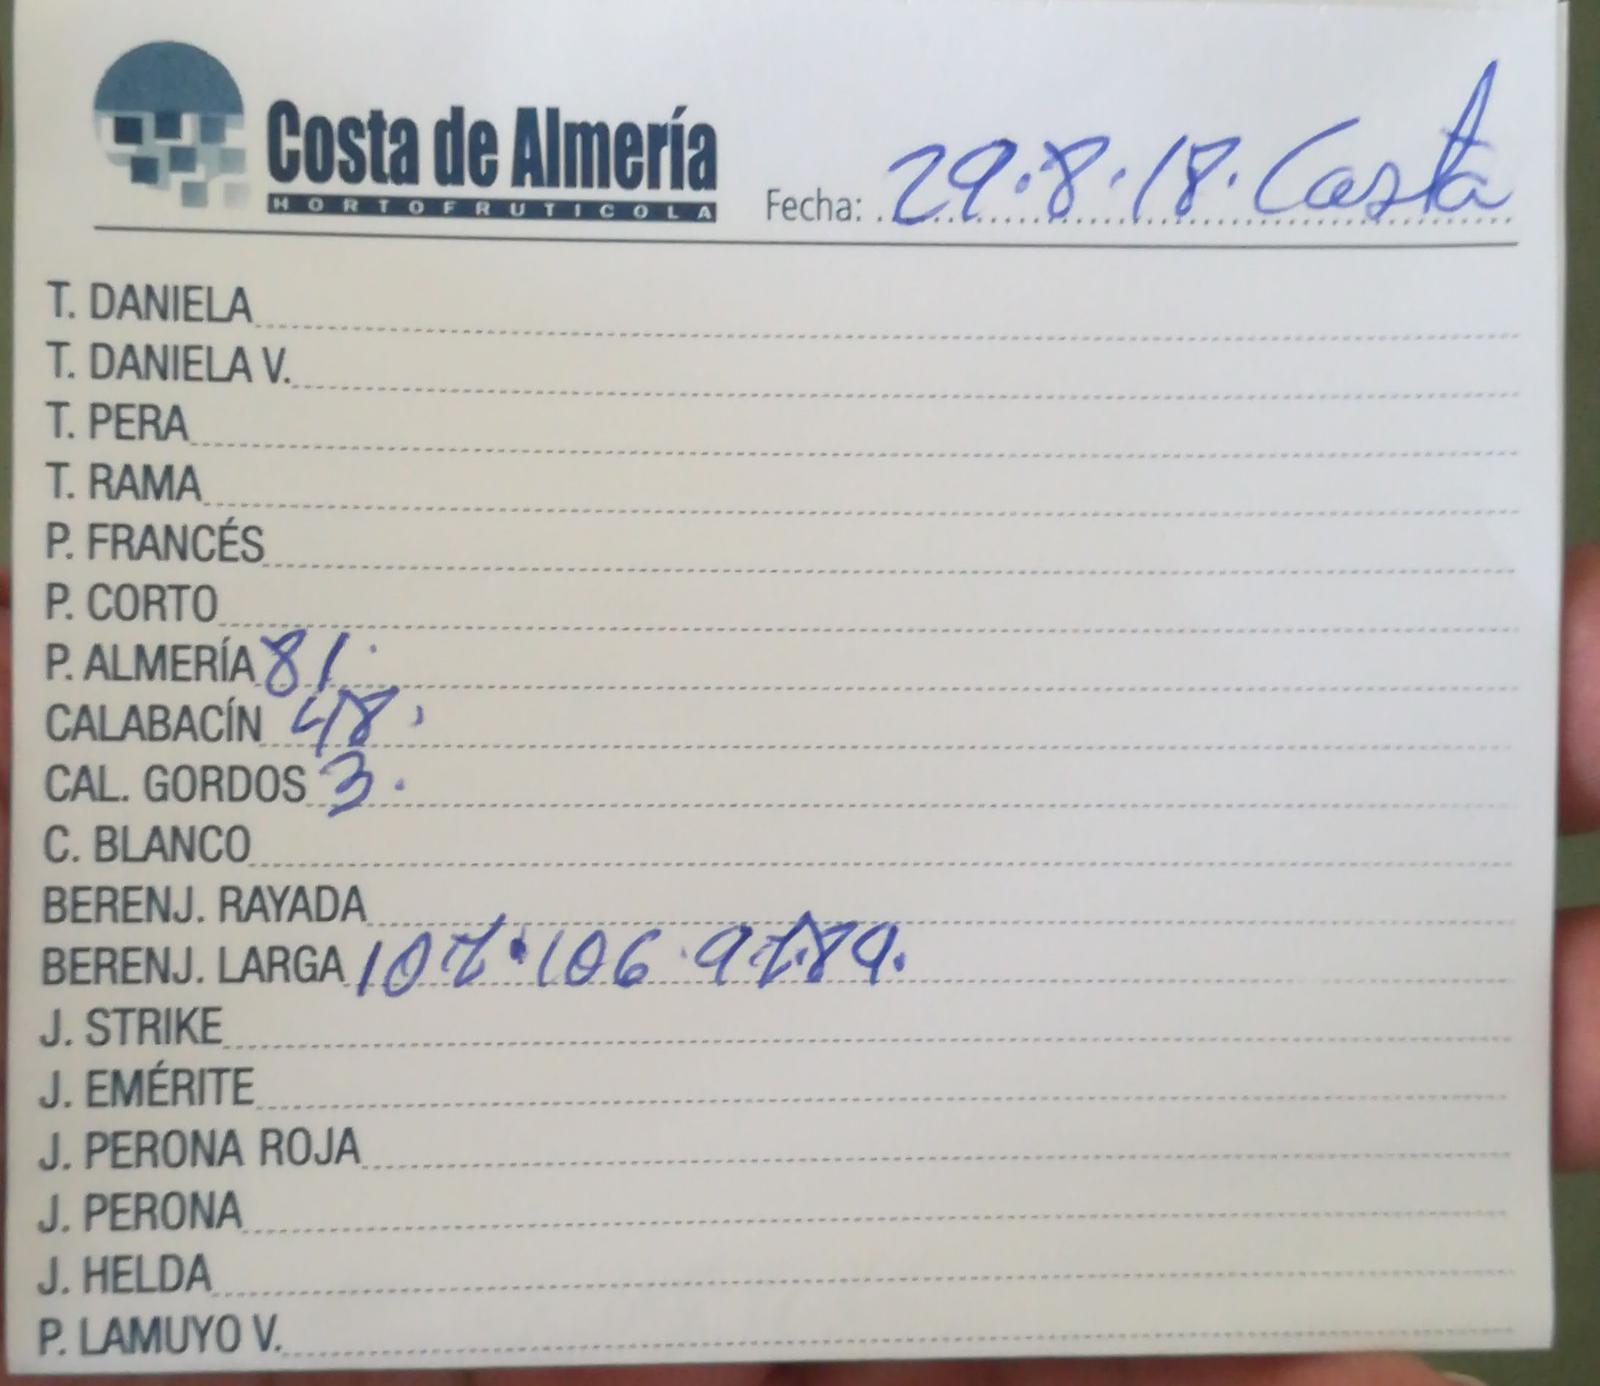 Costa de Almería
HORTOFRUTICOLA
Fecha: 29.8.18. Costa
T. DANIELA
T. DANIELA V.
T. PERA
T. RAMA
P. FRANCÉS
P. CORTO
P. ALMERÍA 81.
CALABACÍN 48.
CAL. GORDOS 3.
C. BLANCO
BERENJ. RAYADA
BERENJ. LARGA 107.106.97.89.
J. STRIKE
J. EMÉRITE
J. PERONA ROJA
J. PERONA
J. HELDA
P. LAMUYO V.